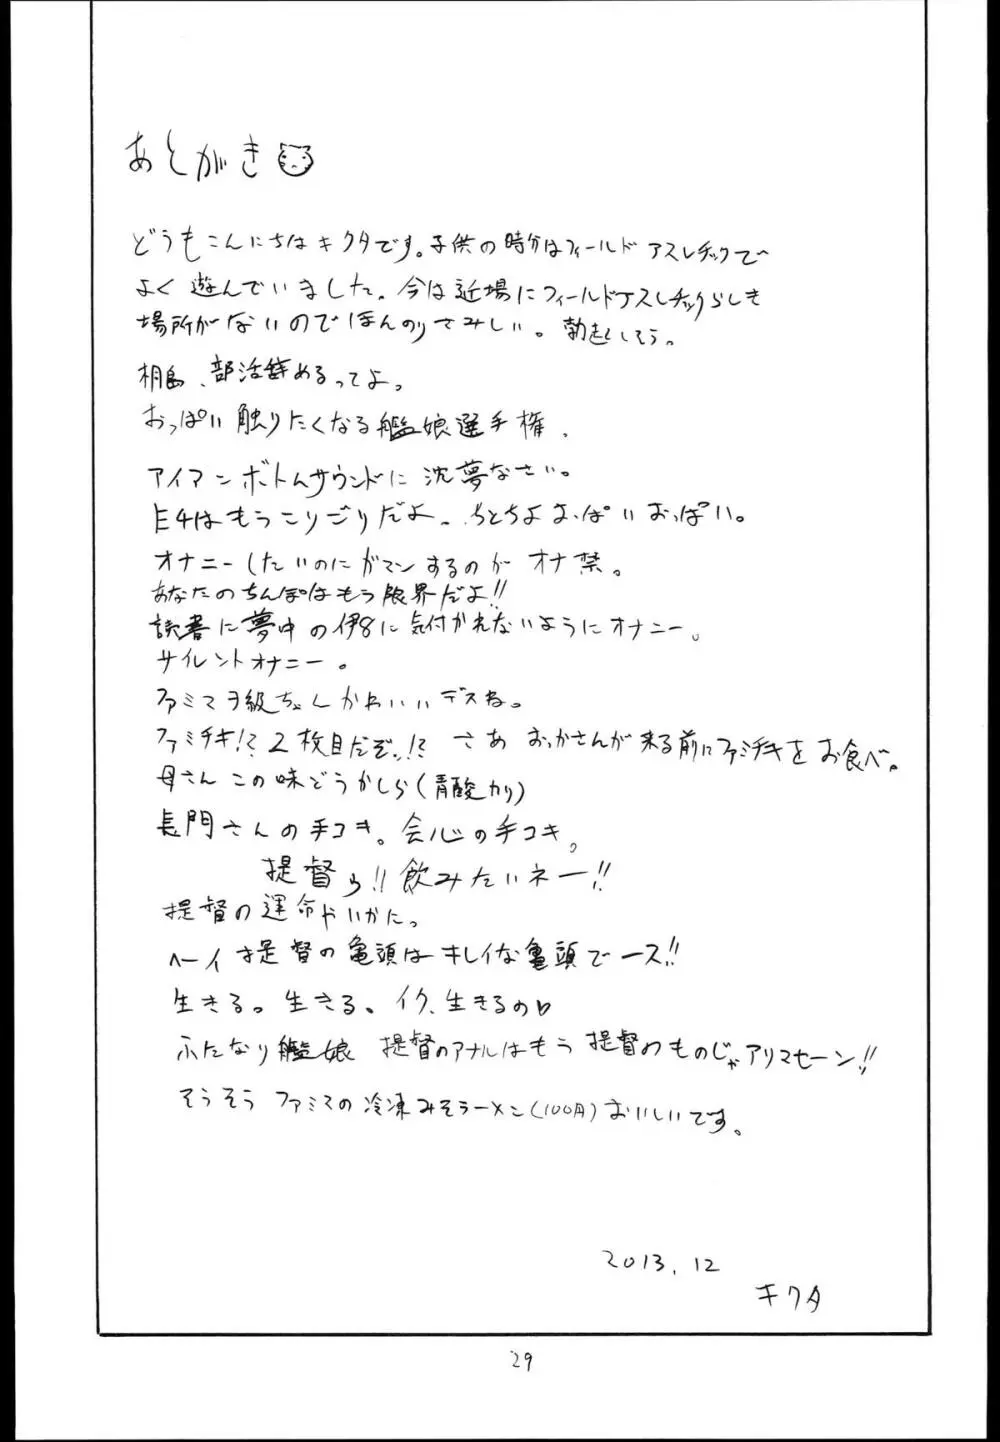 あとがき
どうもこんにちはキクタです。子供の時分はフィールドアスレチックで
よく遊んでいました。今は近場にフィールドアスレチックらしき
場所がないのでほんのりさみしい。勃起しそう。
桐島、部活辞めるってよ。
おっぱい触りたくなる艦娘選手権。
アイアンボトムサウンドに沈夢なさい。
E4はもうこりごりだよ。ちとちよおっぱいおっぱい。
オナニーしたいのにガマンするのがオナ禁。
あなたのちんぽはもう限界だよ!!
読書に夢中の伊8に気付かれないようにオナニー。
サイレントオナニー。
ファミマヲ級ちゃんかわいいデスね。
ファミチキ!?2枚目だぞ!?さあおっかさんが来る前にファミチキをお食べ。
母さんこの味どうかしら(青酸カリ)
長門さんの手コキ。会心の手コキ。
提督ゥ!!飲みたいネー!!
提督の運命やいかに。
ヘーイ提督の亀頭はキレイな亀頭でース!!
生きる。生きる。イク、生きるの♡
ふたなり艦娘 提督のアナルはもう提督のものじゃアリマセーン!!
そうそうファミマの冷凍みそラーメン(100円)おいしいです。
2013.12
キクタ
29